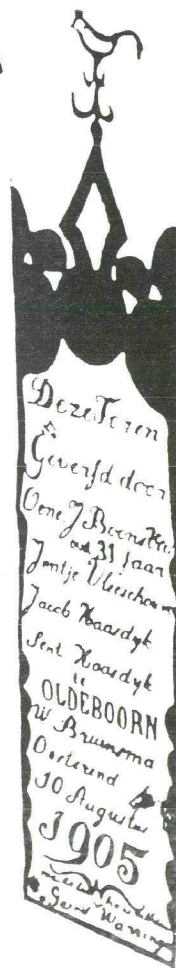 Deze Toren
is
Geverfd door
Oene J Boonstra
oud 31 Jaar
Jantje Vleeschou
Jacob Haasdyk
Sent Haasdyk
te
OLDEBOORN
W Bruinsma
Oosterend
10 Augustus
1905